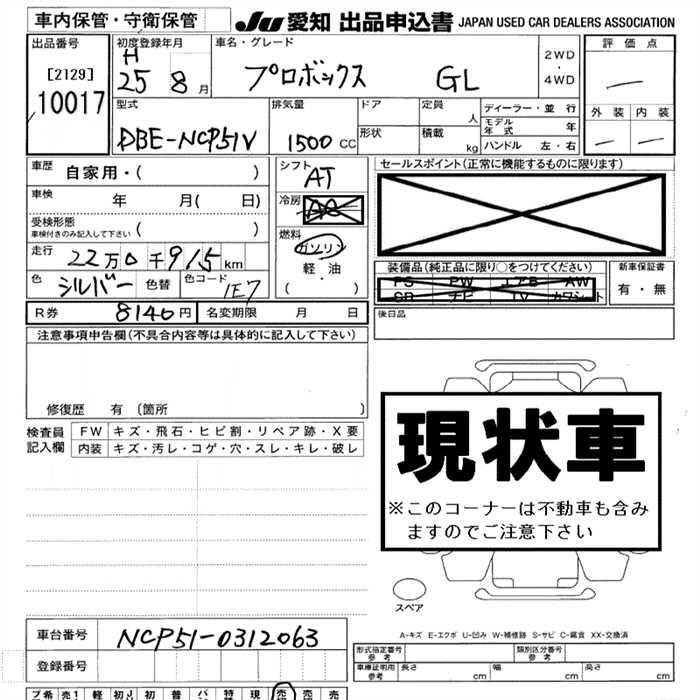 車内保管・守衛保管
JU 愛知 出品申込書 JAPAN USED CAR DEALERS ASSOCIATION
出品番号
[2129]
10017
初度登録年月
H 25 8 月
車名・グレード
プロボックス GL
2WD
・
4WD
評価点
外装 内装
型式
DBE-NCP51V
排気量
1500 CC
ドア
形状
定員 人
積載 kg
ディーラー・並行
モデル年式 年
ハンドル 左・右
車歴 自家用・( )
車検 年 月( 日)
受検形態
車検付きのみ記入して下さい ( )
走行 22万0千915km
色 シルバー 色替 色コード 1E7
シフト AT
冷房
燃料
ガソリン
軽・油
( )
セールスポイント(正常に機能するものに限ります)
装備品(純正品に限り○をつけてください)
PS PW エアB AW
SR ナビ TV カワシート
新車保証書
有・無
R券 8140円 名変期限 月 日
後日品
注意事項申告欄(不具合内容等は具体的に記入して下さい)
修復歴 有 〔箇所 〕
検査員
記入欄
FW キズ・飛石・ヒビ割・リペア跡・X要
内装 キズ・汚レ・コゲ・穴・スレ・キレ・破レ
現状車
※このコーナーは不動車も含み
ますのでご注意下さい
スペア
A-キズ E-エクボ U-凹み W-補修跡 S-サビ C-腐食 XX-交換済
車台番号 NCP51-0312063
登録番号
形式指定番号
参考
類別区分番号
参考
車庫証明用
参考
長さ cm 幅 cm 高さ cm